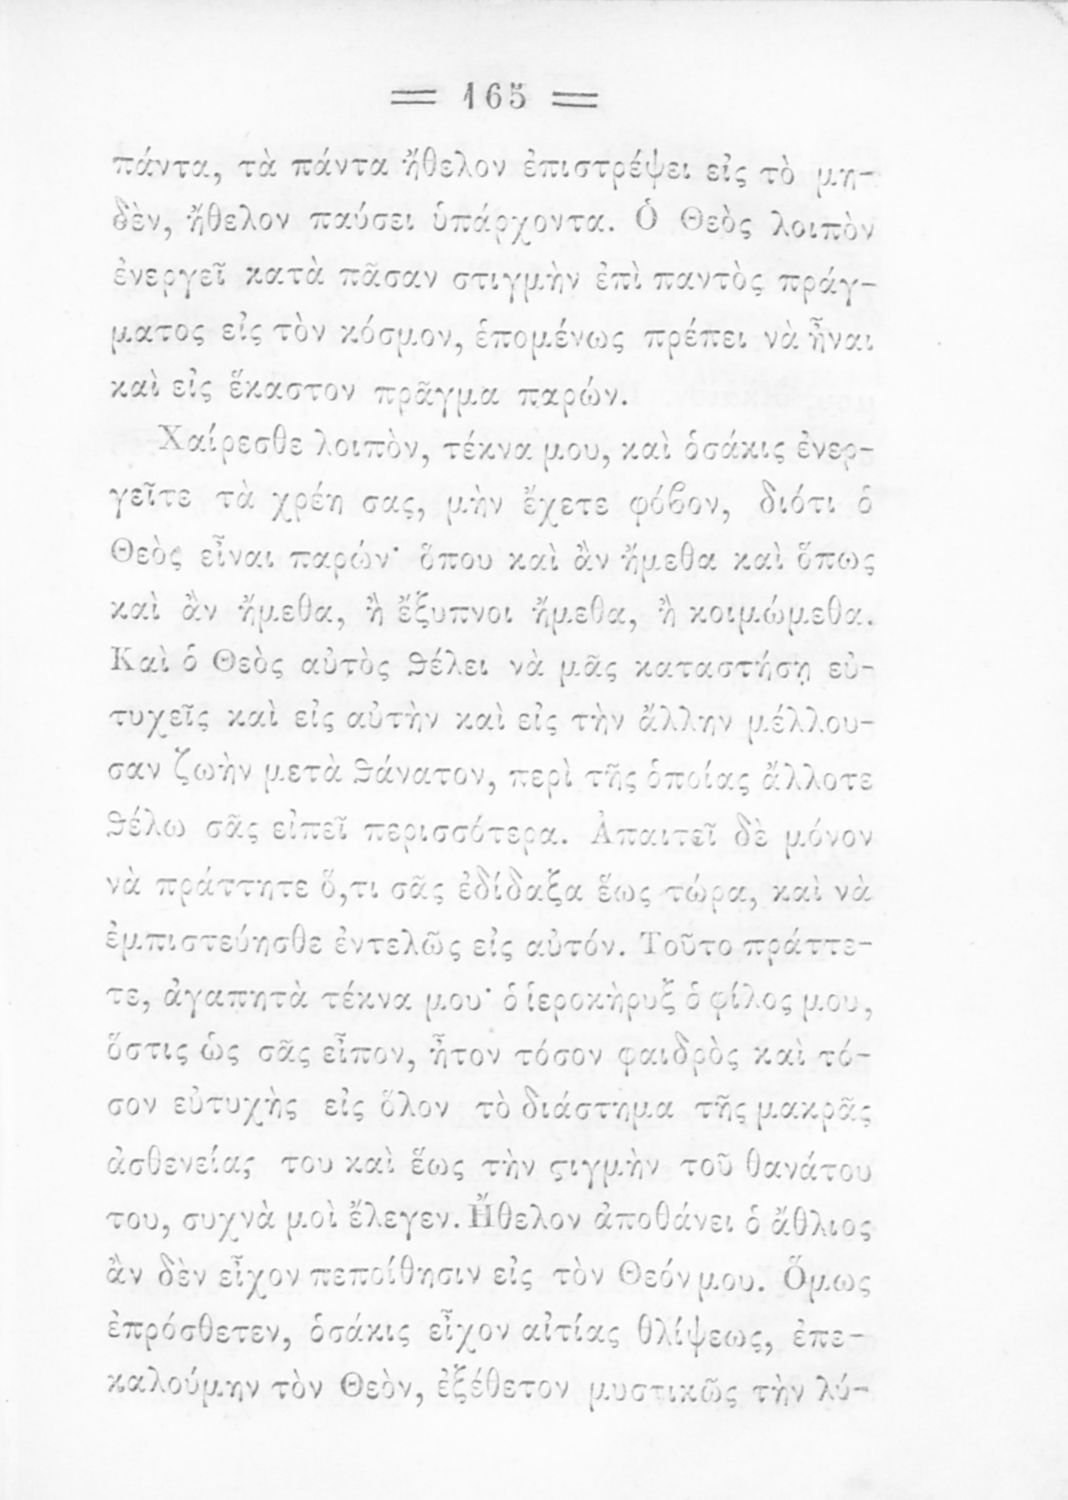 = 165 =
πάντα, τὰ πάντα ἤθελον ἐπιστρέψει εἰς τὸ μη-
δὲν, ἤθελον παύσει ὑπάρχοντα. Ὁ Θεὸς λοιπὸν
ἐνεργεῖ κατὰ πᾶσαν στιγμὴν ἐπὶ παντὸς πράγ-
ματος εἰς τὸν κόσμον, ἑπομένως πρέπει νὰ ἦναι
καὶ εἰς ἕκαστον πρᾶγμα παρών.
Χαίρεσθε λοιπὸν, τέκνα μου, καὶ ὁσάκις ἐνερ-
γεῖτε τὰ χρέη σας, μὴν ἔχετε φόβον, διότι ὁ
Θεὸς εἶναι παρών· ὅπου καὶ ἂν ἤμεθα καὶ ὅπως
καὶ ἂν ἤμεθα, ἢ ἔξυπνοι ἤμεθα, ἢ κοιμώμεθα.
Καὶ ὁ Θεὸς αὐτὸς ϑέλει νὰ μᾶς καταστήσῃ εὐ-
τυχεῖς καὶ εἰς αὐτὴν καὶ εἰς τὴν ἄλλην μέλλου-
σαν ζωὴν μετὰ ϑάνατον, περὶ τῆς ὁποίας ἄλλοτε
ϑέλω σᾶς εἰπεῖ περισσότερα. Ἀπαιτεῖ δὲ μόνον
νὰ πράττητε ὅ,τι σᾶς ἐδίδαξα ἕως τώρα, καὶ νὰ
ἐμπιστεύησθε ἐντελῶς εἰς αὐτόν. Τοῦτο πράττε-
τε, ἀγαπητὰ τέκνα μου· ὁ ἱεροκὴρυξ ὁ φίλος μου,
ὅστις ὡς σᾶς εἶπον, ἦτον τόσον φαιδρὸς καὶ τό-
σον εὐτυχὴς εἰς ὅλον τὸ διάστημα τῆς μακρᾶς
ἀσθενείας του καὶ ἕως τὴν ϛιγμὴν τοῦ θανάτου
του, συχνὰ μοὶ ἔλεγεν. Ἤθελον ἀποθάνει ὁ ἄθλιος
ἂν δὲν εἶχον πεποίθησιν εἰς τὸν Θεόν μου. Ὅμως
ἐπρόσθετεν, ὁσάκις εἶχον αἰτίας θλίψεως, ἐπε-
καλούμην τὸν Θεὸν, ἐξέθετον μυστικῶς τὴν λύ-